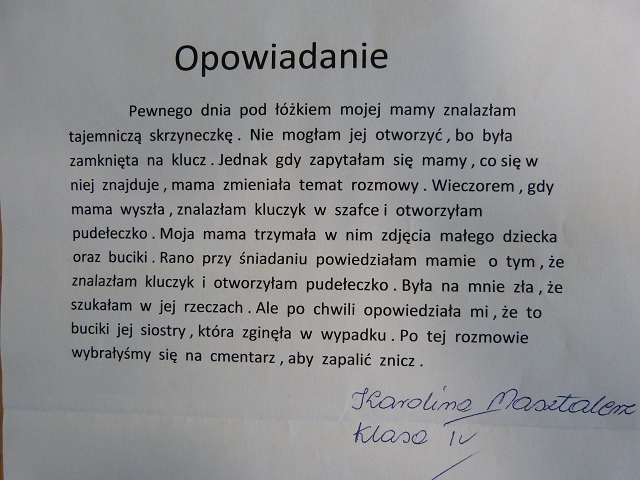 Opowiadanie
Pewnego dnia pod łóżkiem mojej mamy znalazłam
tajemniczą skrzyneczkę . Nie mogłam jej otworzyć , bo była
zamknięta na klucz . Jednak gdy zapytałam się mamy , co się w
niej znajduje , mama zmieniała temat rozmowy . Wieczorem , gdy
mama wyszła , znalazłam kluczyk w szafce i otworzyłam
pudełeczko . Moja mama trzymała w nim zdjęcia małego dziecka
oraz buciki . Rano przy śniadaniu powiedziałam mamie o tym , że
znalazłam kluczyk i otworzyłam pudełeczko . Była na mnie zła , że
szukałam w jej rzeczach . Ale po chwili opowiedziała mi , że to
buciki jej siostry , która zginęła w wypadku . Po tej rozmowie
wybrałyśmy się na cmentarz , aby zapalić znicz .
Karolina Masztalerz
Klasa IV